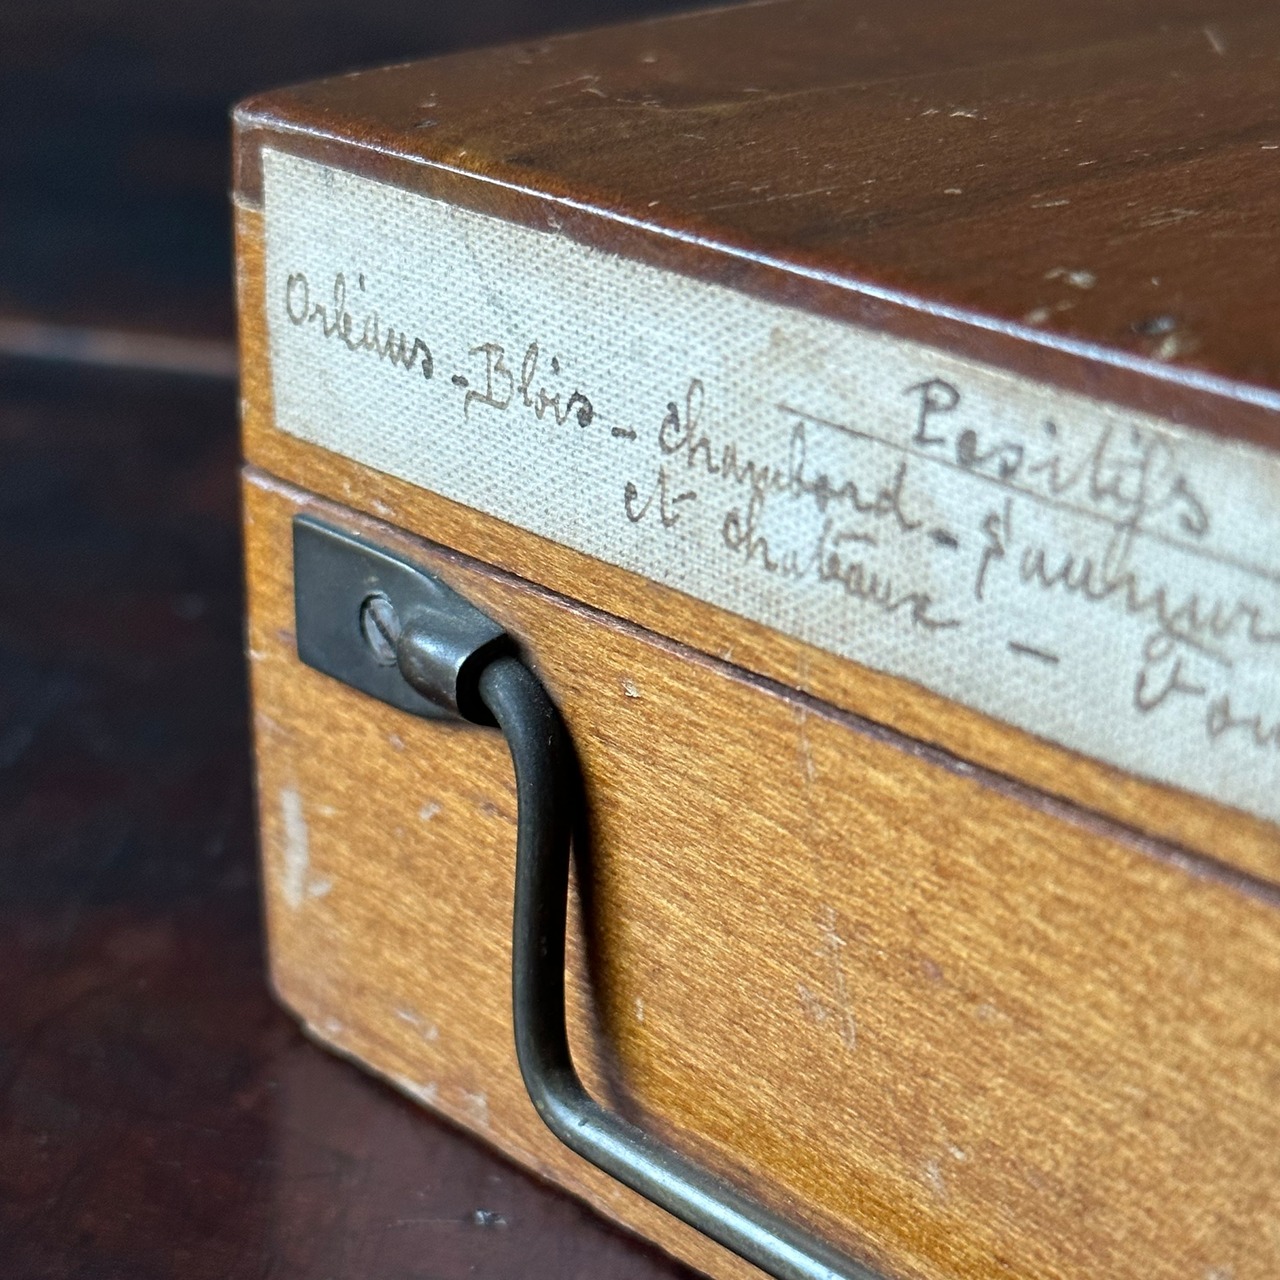 Positifs
Orléans - Blois - Chambord - Saumur
et chateaux -